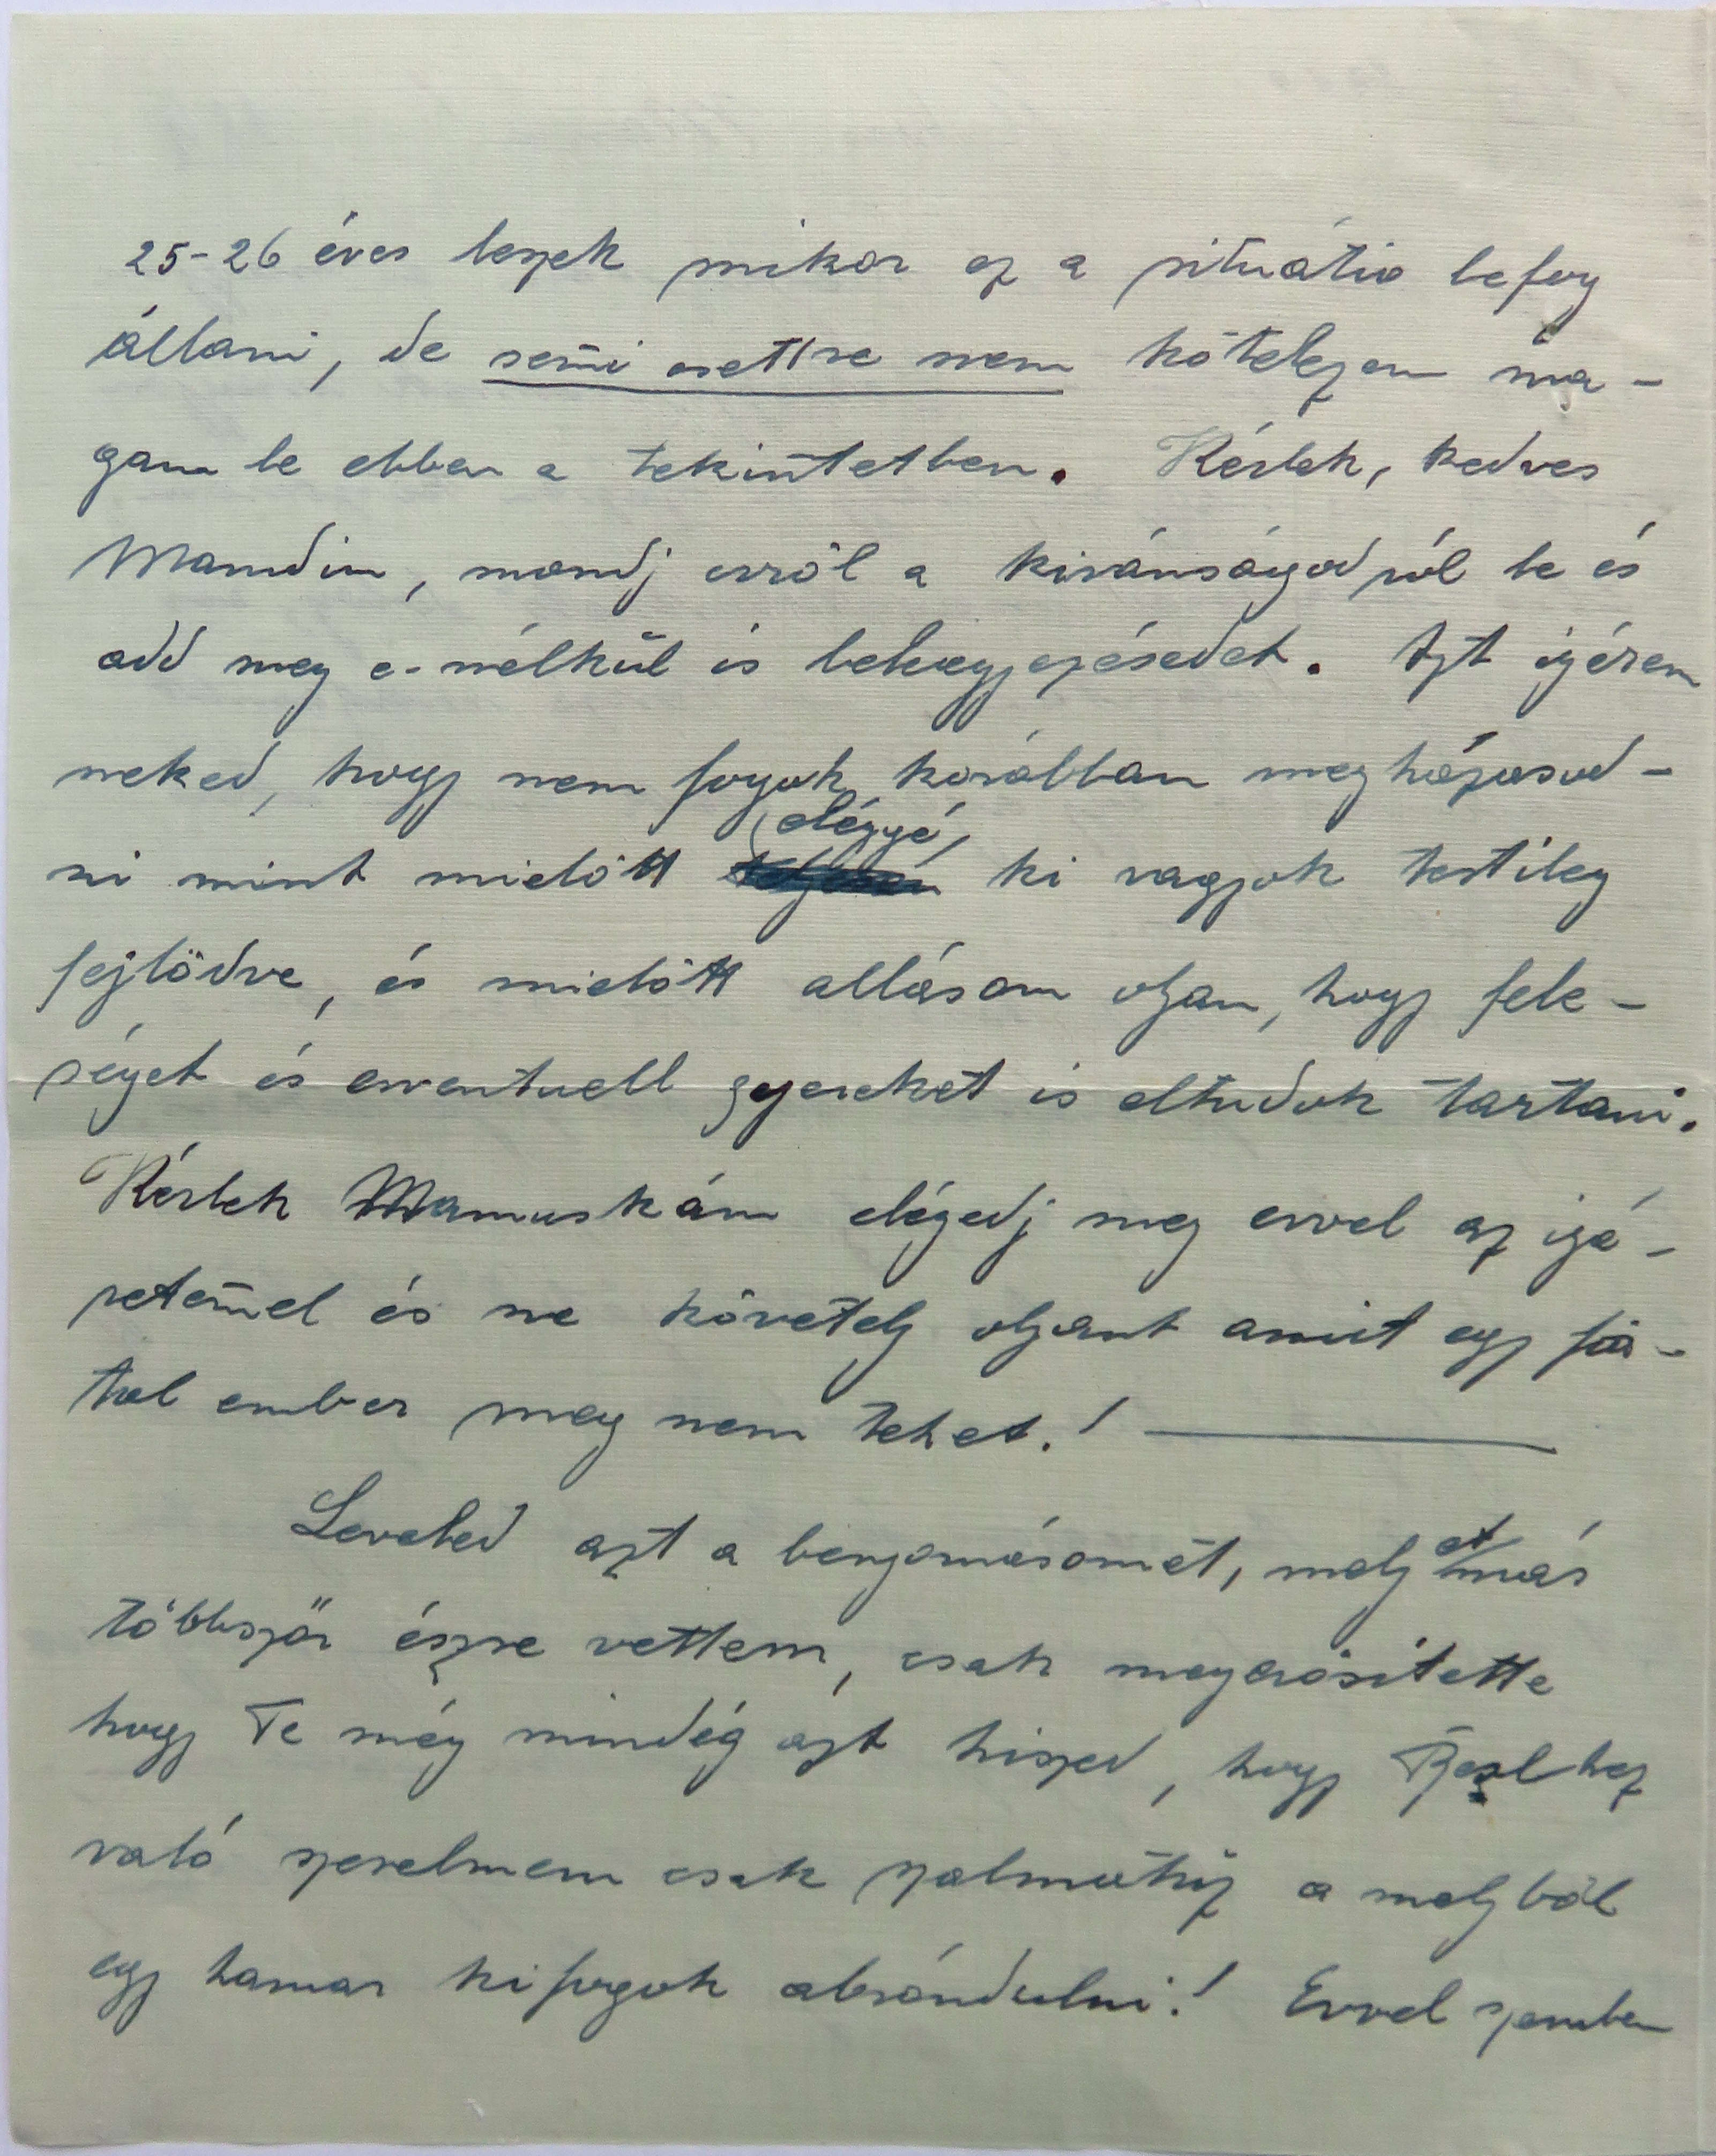 25-26 éves leszek mikor ez a situátio befog
állani, de sem̄i esettre nem kötelezem ma-
gam le ebben a tekintetben. Kérlek, kedves
Mamdim, mondj erről a kivánságodról le és
add meg e-nélkül is beleegyezésedet. Azt igérem
neked, hogy nem fogok korábban megházasod-
ni mint mielőtt eléggé ki vagyok testileg
fejlődve, és mielőtt allásom oljan, hogy fele-
séget és eventuell gyereket is eltudok tartani.
Kérlek Mamuskám elégedj meg evvel az igé-
retem̄el és ne követelj oljant amit egy fia-
tal ember meg nem tehet.!
Leveled azt a benyomásomat, meljet más
többször észre vettem, csak megerősitette
hogy Te még mindég azt hiszed, hogy
való szerelmem csak szalmatűz a meljből
egy hamar kifogok ábrándulni.! Evvel szemben